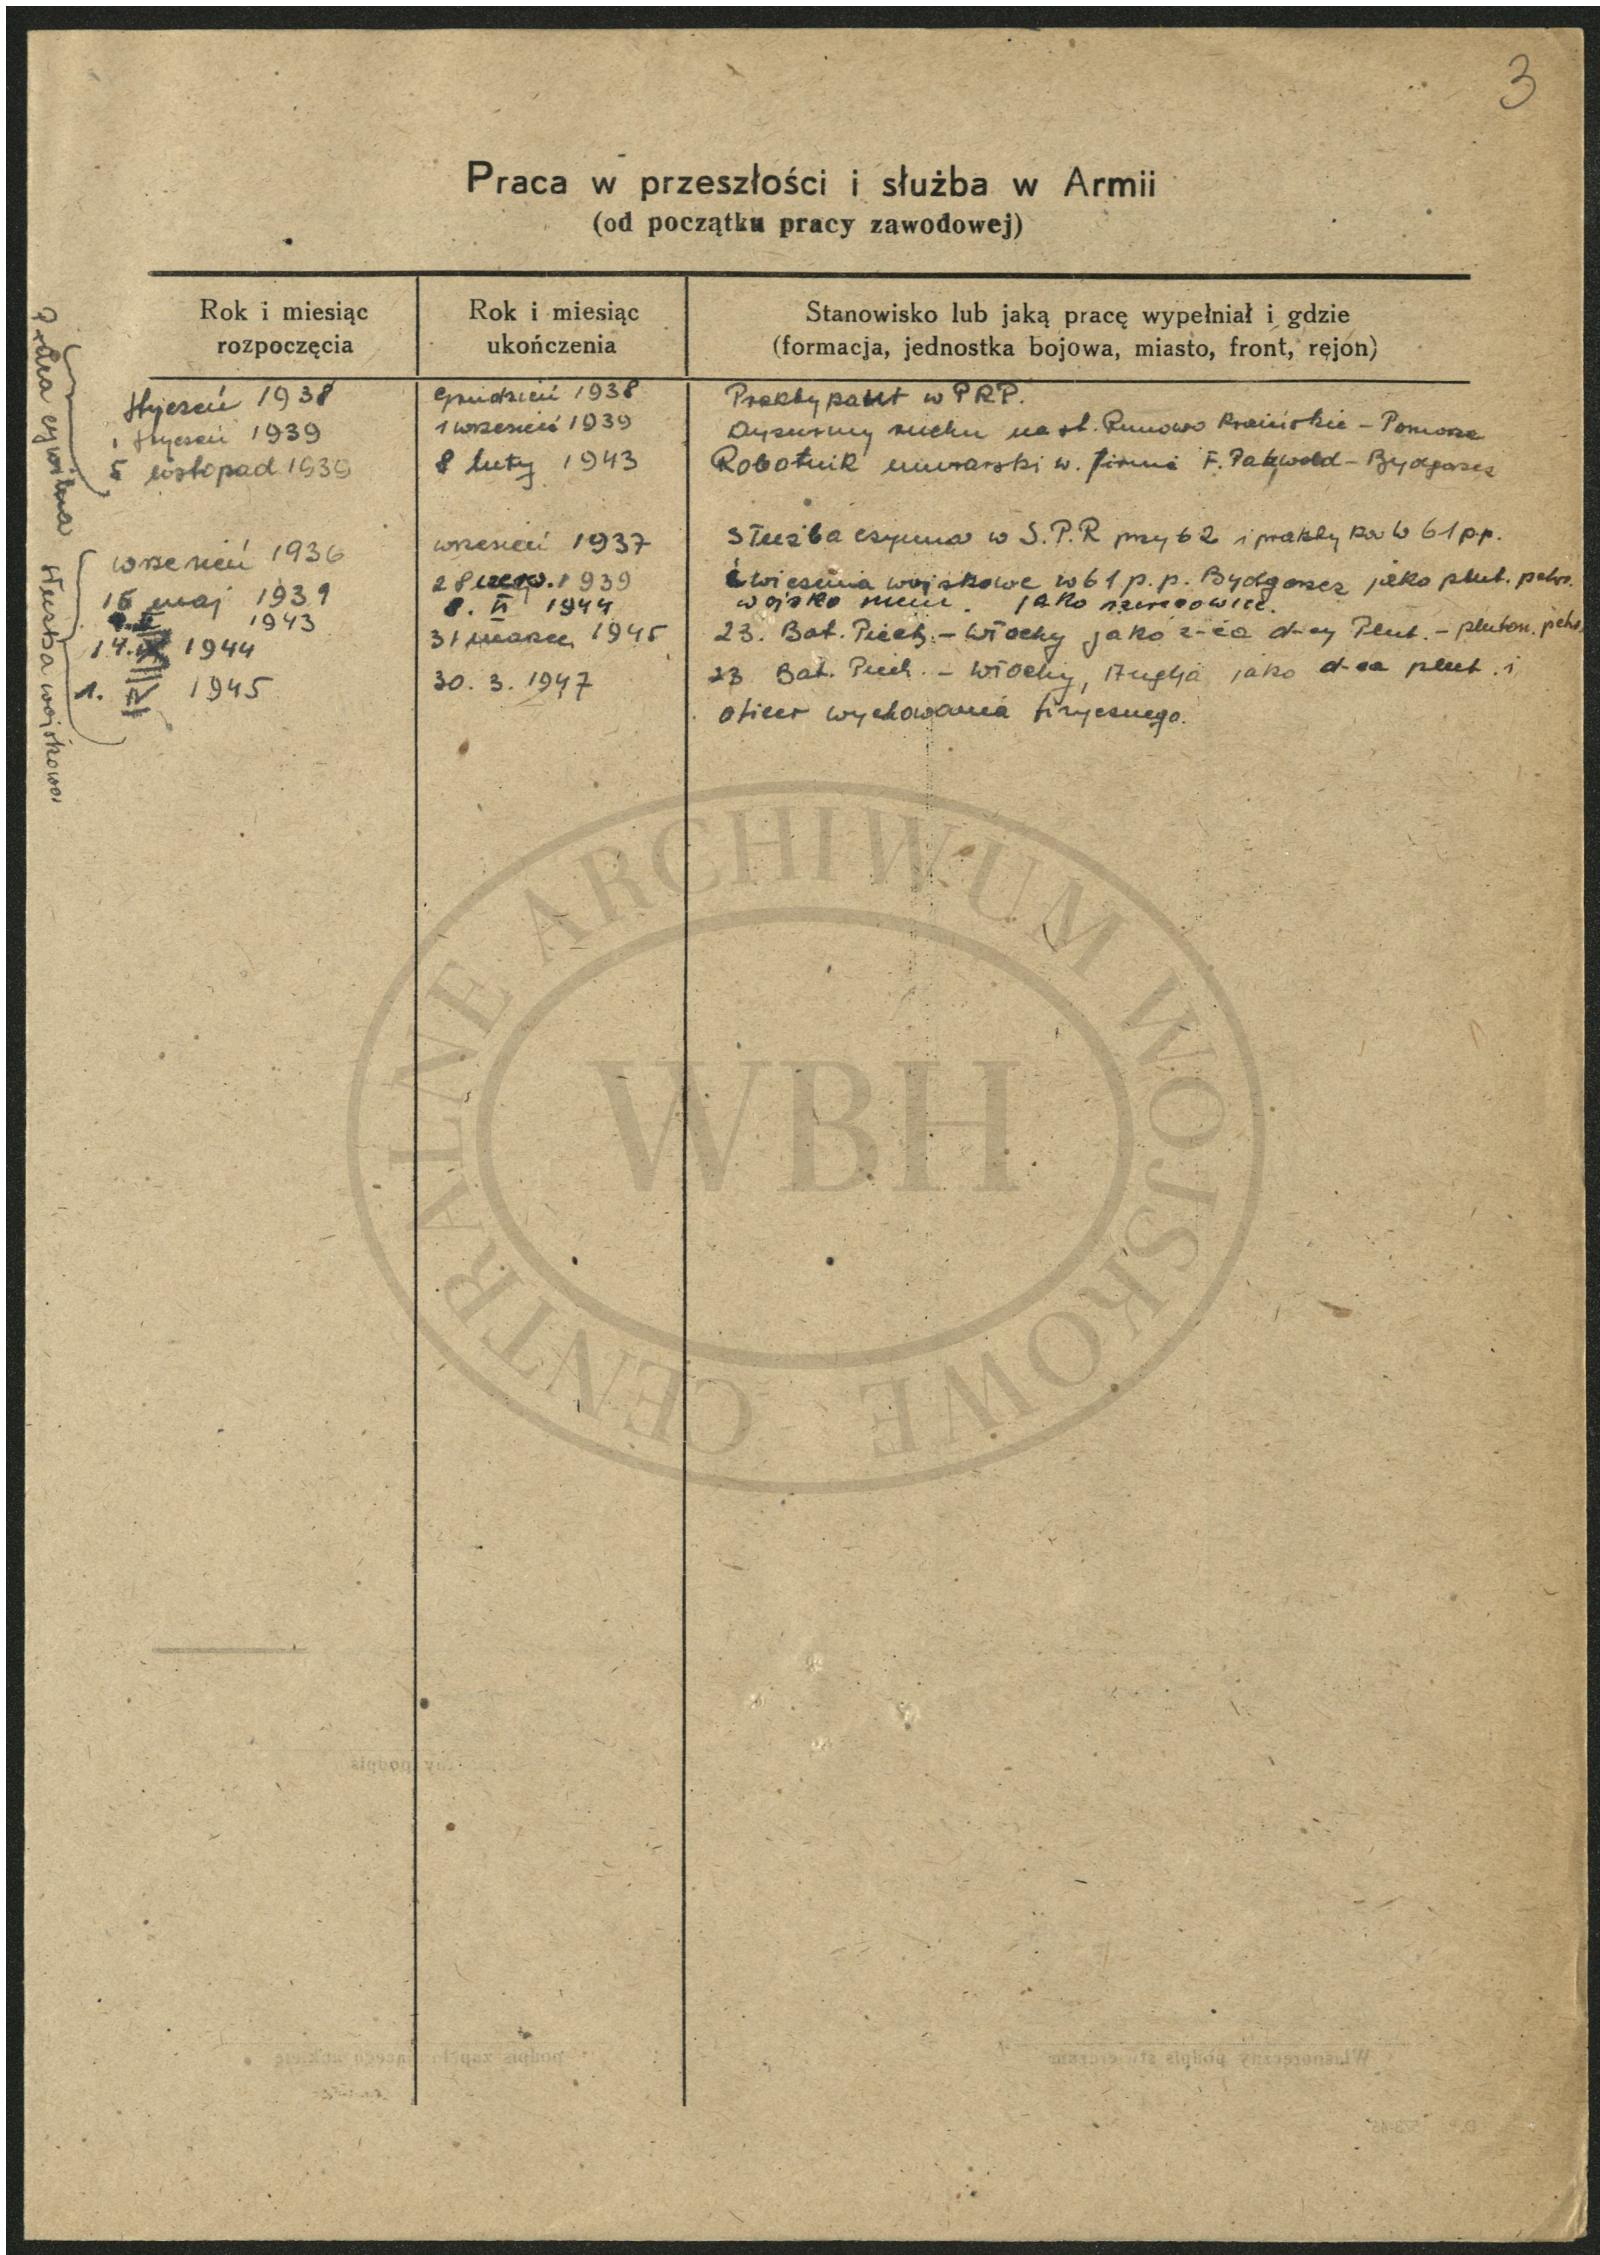 3
Praca w przeszłości i służba w Armii
(od początku pracy zawodowej)
Rok i miesiąc rozpoczęcia
Rok i miesiąc ukończenia
Stanowisko lub jaką pracę wypełniał i gdzie
(formacja, jednostka bojowa, miasto, front, rejon)
Praca cywilna
styczeń 1938 grudzień 1938 Praktykant w PKP.
1 styczeń 1939 1 wrzesień 1939 Dyżurny ruchu na st. Runowo Kraińskie – Pomorze
5 listopad 1939 8 luty 1943 Robotnik murarski w firmie F. – Bydgoszcz
służba wojskowa
wrzesień 1936 wrzesień 1937 Służba czynna w S.P.R przy 62 i praktyka w 61 p.p.
15 maj 1939 28 czerw. 1939 ćwiczenia wojskowe w 61 p.p. Bydgoszcz jako plut. pchor.
1943 8. VI 1944 wojsko niem. jako szeregowiec.
14. 1944 31 marzec 1945 23. Bat. Piech. – Włochy jako z-ca d-cy Plut. – pluton. pchor.
1. IV 1945 30. 3. 1947 23 Bat. Piech. – Włochy, Anglja jako d-ca plut. i
oficer wychowania fizycznego.
CENTRALNE ARCHIWUM WOJSKOWE
WBH